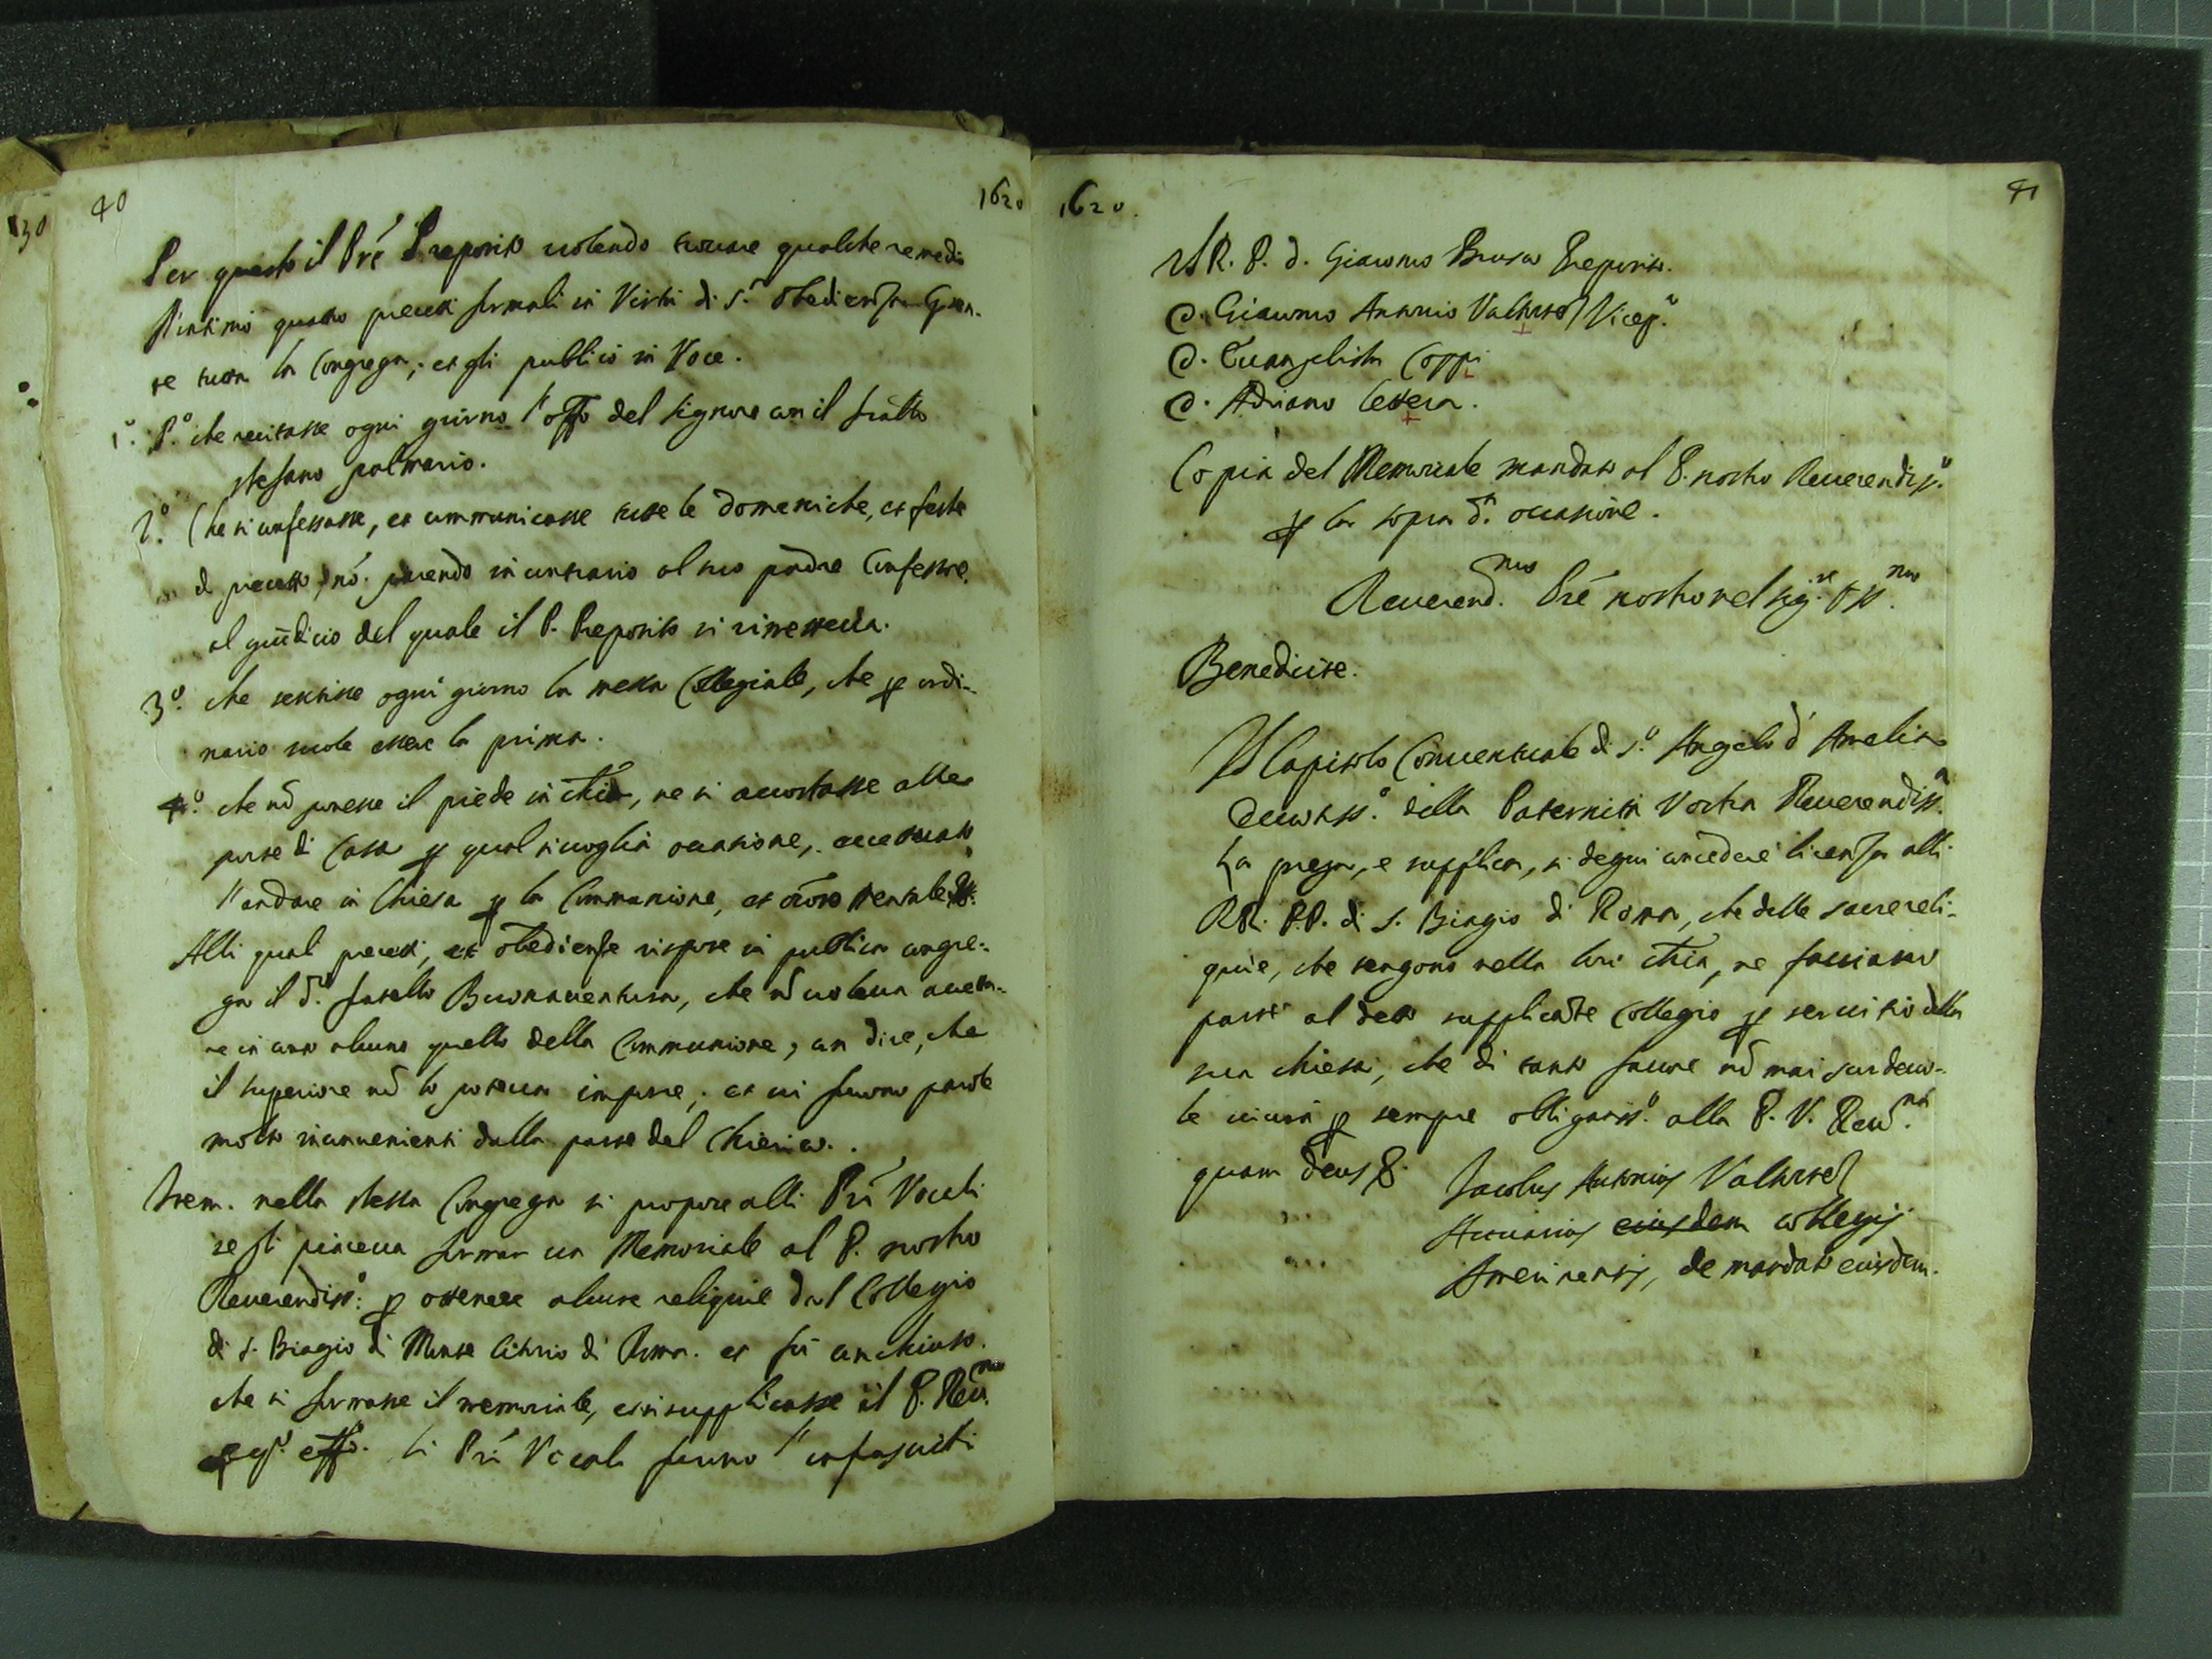 30
40
1620
Per questo il Prē Preposito uolendo trouare qualche remedio
l'intimò quattro precetti formali in Virtù di S.ª obedienza
te tutta la Congrega; et gli publicò in Voce.
1.º P.º che recitasse ogni giorno l'offo del Signore con il fratto
stefano palmario.
2.º Che si confessasse, et communicasse tutte le domeniche, et feste
di precetto, nō. parendo in contrario al suo padre Confessore,
al giuditio del quale il P. Preposito si rimetteua.
3.º che sentisse ogni giorno la messa Collegiale, che p ordi-
nario suole essere la prima.
4.º che nō ponesse il piede in chia, ne si accostasse alle
porte di Casa p qual si uoglia occasione, eccettuato
l'andare in Chiesa p la Communione, et
Alli quali precetti, et obedienze rispose in publica congre-
ga il d.º fratello Buonauentura, che nō uoleua accetta-
re in conto alcuno quello della Communione, con dire, che
il superiore nō lo poteua imporre; et ui furono parole
molto inconuenienti dalla parte del Chierico.
Item. nella stessa Congrega si propose alli Pri Vocali
se gli piaceua formar un Memoriale al P. nostro
Reuerendiss.º p ottenere alcune reliquie dal Collegio
di S. Biagio di Monte Citorio di Roma. et fù conchiuso
che si formasse il memoriale, et si supplicasse il P. Reu.mo
p qsº. effo. li Pri Vocali furno l'infrascritti
1620.
41
Il R. P. D. Giacomo Brusco Preposito.
D. Giacomo Antonio Valtorta Vicep.º
D. Euangelista Coppi
D. Adriano Cettera.
Copia del Memoriale mandato al P. nostro Reuerendiss.º
p la sopra d.ª occasione.
Reuerend.mo Prē nostro nel Sig.re oss.mo
Benedicite.
Il Capitolo Conuentuale di S.º Angelo d'Amelia
Deuotiss.º della Paternità Vostra Reuerendiss.ª
La prega, e supplica, si degni concedere licenza alli
RR. PP. di S. Biagio di Roma, che delle sacre reli-
quie, che tengono nella loro chia, ne facciano
parte al detto supplicāte Collegio p seruitio della
sua chiesa, che di tanto fauore nō mai scordeuo-
le uiuerà p sempre obligatiss.º alla P. V. Reu.ma
quam Deus &.
Jacobus Antonius Valtorta
Actuarius eiusdem collegij
Amerinensis, de mandato eiusdem.